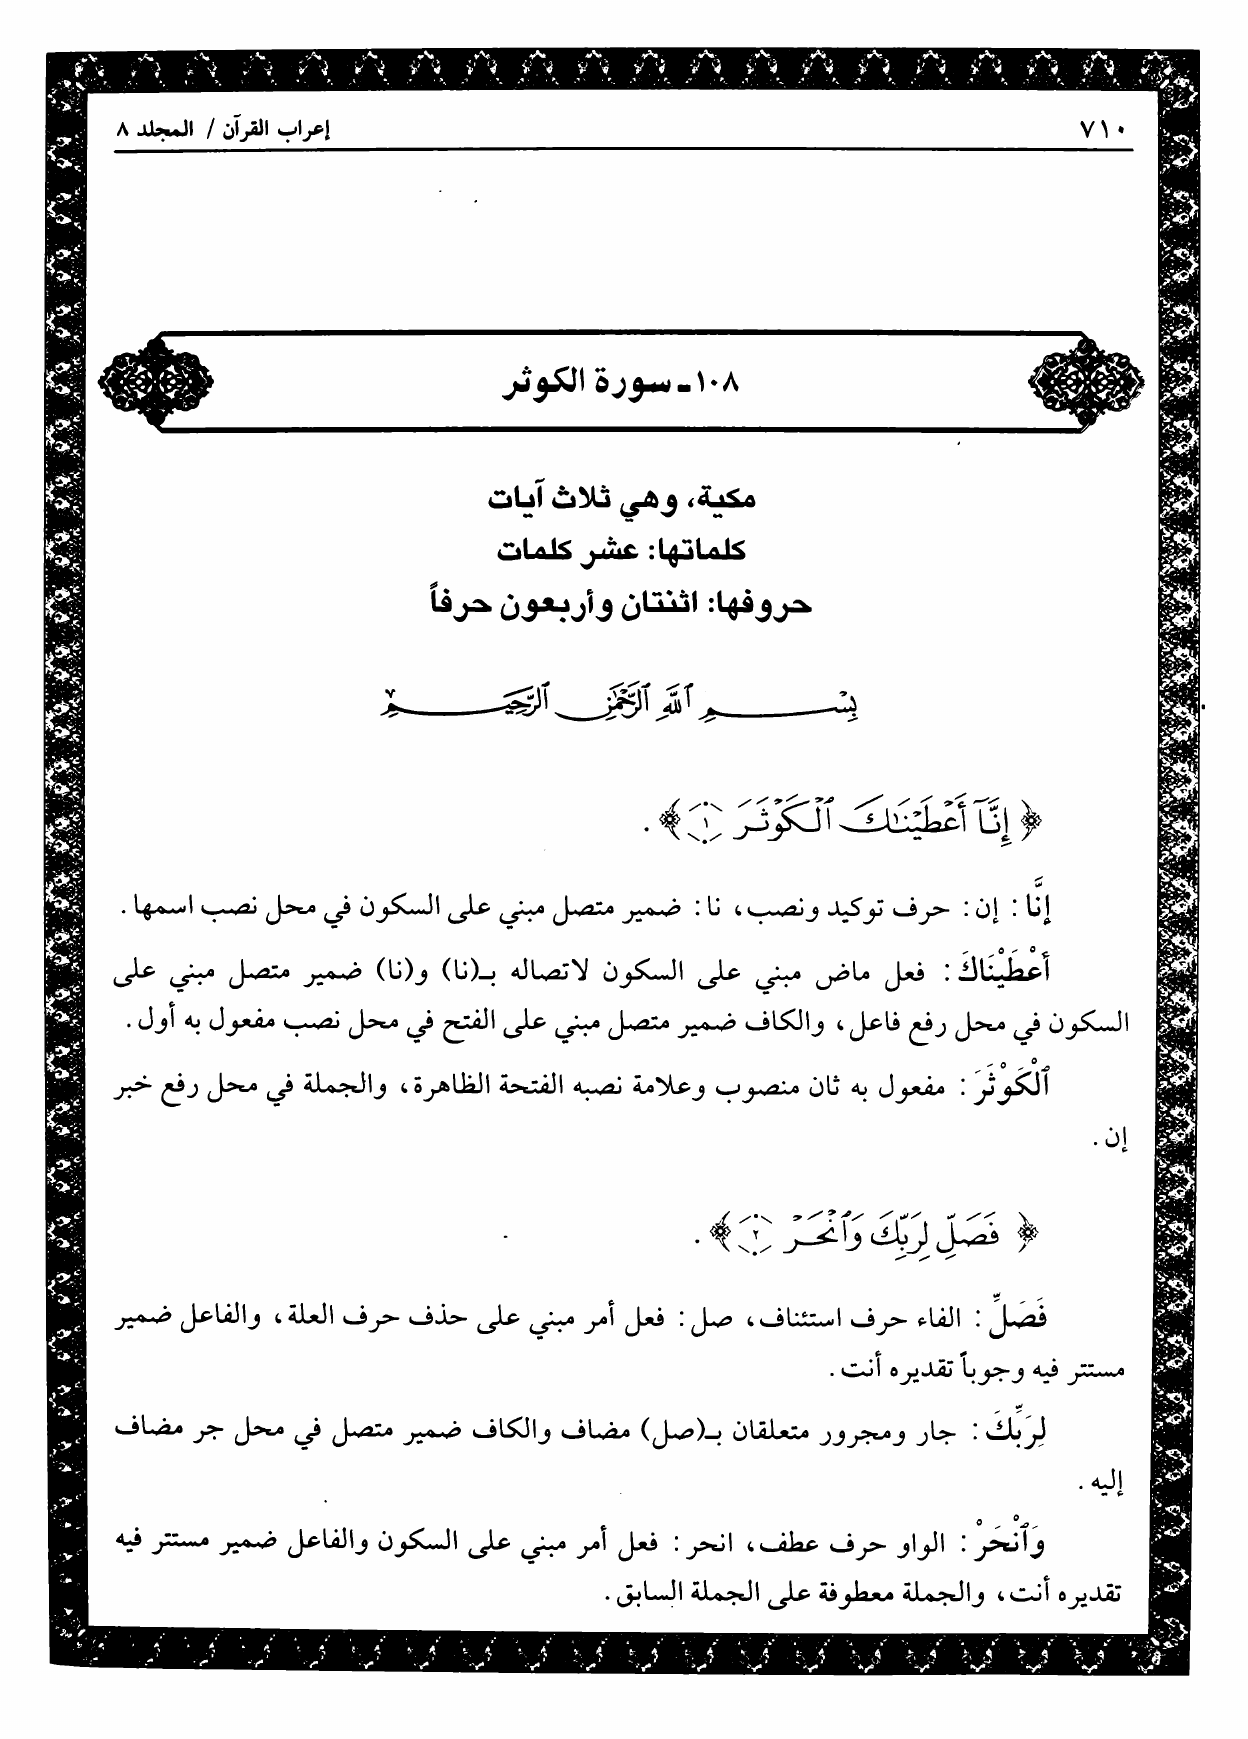 ٧١٠
إعراب القرآن / المجلد ٨
١٠٨ - سورة الكوثر
مكية، وهي ثلاث آيات
كلماتها: عشر كلمات
حروفها: اثنتان وأربعون حرفاً
بِسْمِ ٱللَّهِ ٱلرَّحْمَٰنِ ٱلرَّحِيمِ
﴿ إِنَّآ أَعْطَيْنَٰكَ ٱلْكَوْثَرَ ١ ﴾.
إنَّا: إن: حرف توكيد ونصب، نا: ضمير متصل مبني على السكون في محل نصب اسمها.
أَعْطَيْنَاكَ: فعل ماض مبني على السكون لاتصاله بـ(نا) و(نا) ضمير متصل مبني على
السكون في محل رفع فاعل، والكاف ضمير متصل مبني على الفتح في محل نصب مفعول به أول.
ٱلْكَوْثَرَ: مفعول به ثان منصوب وعلامة نصبه الفتحة الظاهرة، والجملة في محل رفع خبر
إن.
﴿ فَصَلِّ لِرَبِّكَ وَٱنْحَرْ ٢ ﴾.
فَصَلِّ: الفاء حرف استئناف، صل: فعل أمر مبني على حذف حرف العلة، والفاعل ضمير
مستتر فيه وجوباً تقديره أنت.
لِرَبِّكَ: جار ومجرور متعلقان بـ(صل) مضاف والكاف ضمير متصل في محل جر مضاف
إليه.
وَٱنْحَرْ: الواو حرف عطف، انحر: فعل أمر مبني على السكون والفاعل ضمير مستتر فيه
تقديره أنت، والجملة معطوفة على الجملة السابق.